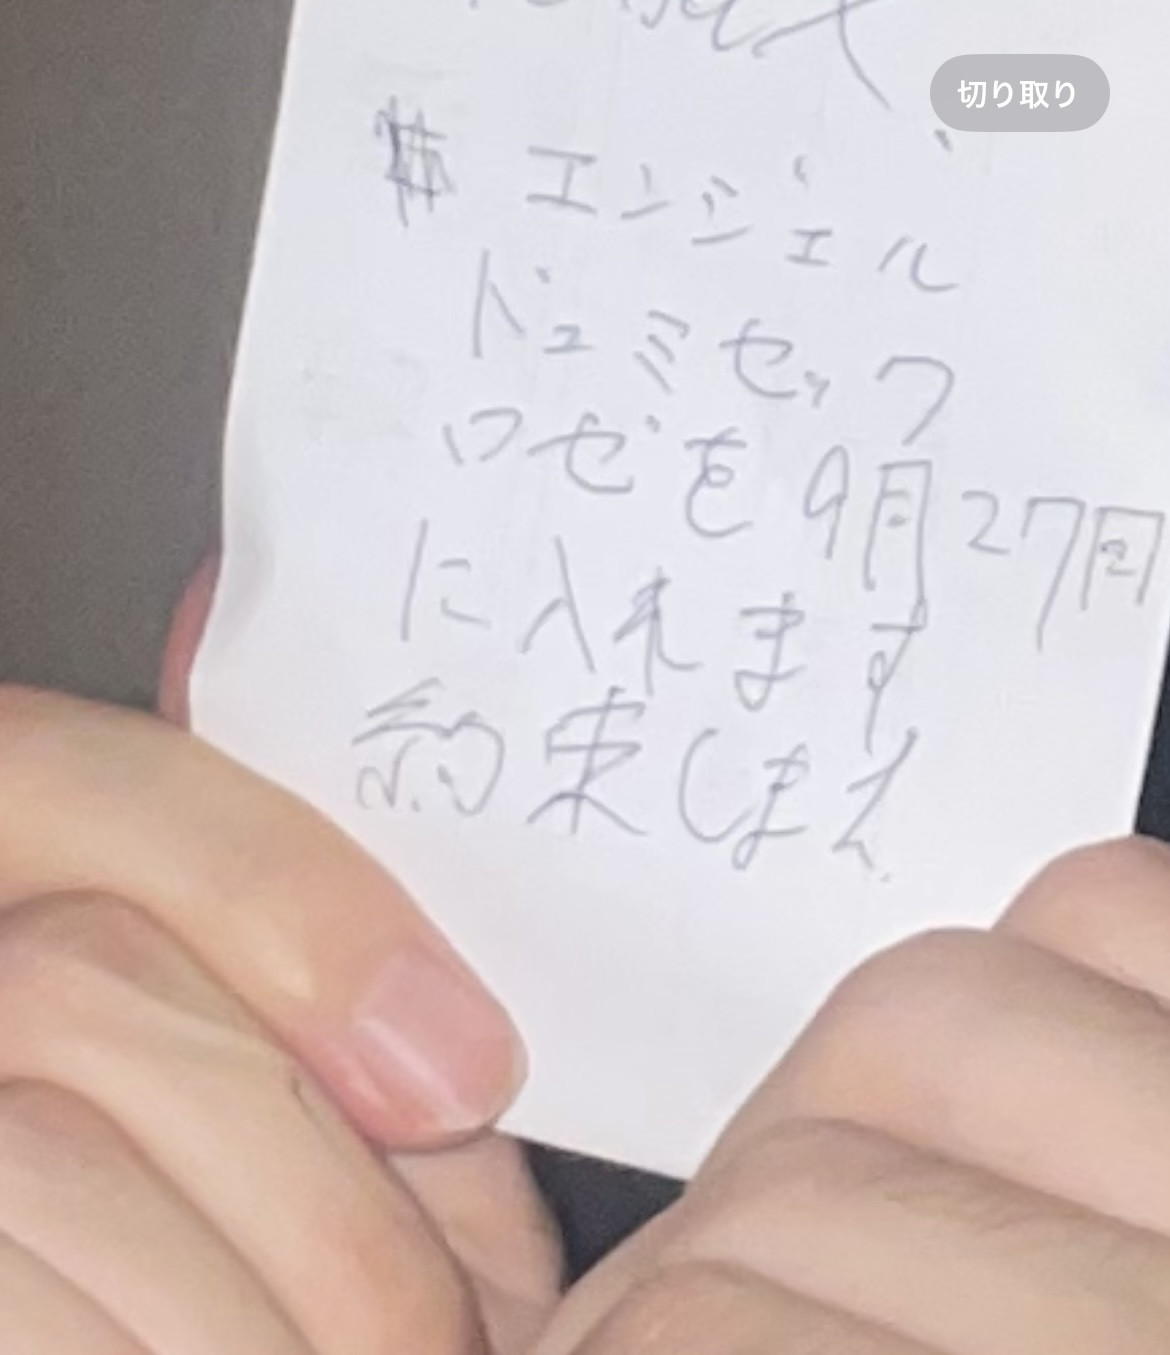 切り取り
エンジェル
ドュミセック
ロゼを9月27日
に入れます
約束します。